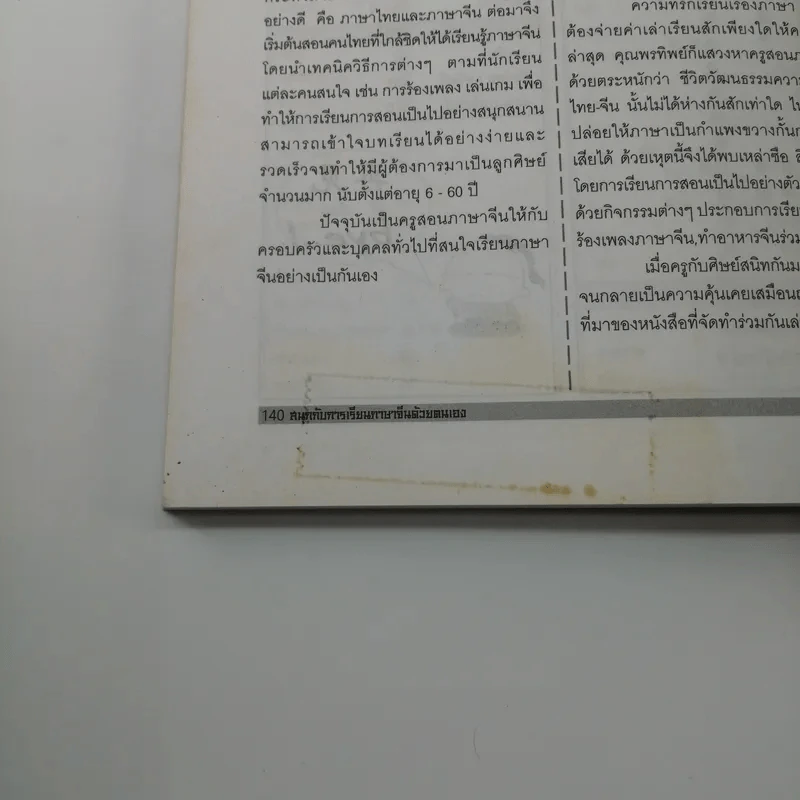 อย่างดี คือ ภาษาไทยและภาษาจีน ต่อมาจึง
เริ่มต้นสอนคนไทยที่ใกล้ชิดให้ได้เรียนรู้ภาษาจีน
โดยนำเทคนิควิธีการต่างๆ ตามที่นักเรียน
แต่ละคนสนใจ เช่น การร้องเพลง เล่นเกม เพื่อ
ทำให้การเรียนการสอนเป็นไปอย่างสนุกสนาน
สามารถเข้าใจบทเรียนได้อย่างง่ายและ
รวดเร็วจนทำให้มีผู้ต้องการมาเป็นลูกศิษย์
จำนวนมาก นับตั้งแต่อายุ 6 - 60 ปี
ปัจจุบันเป็นครูสอนภาษาจีนให้กับ
ครอบครัวและบุคคลทั่วไปที่สนใจเรียนภาษา
จีนอย่างเป็นกันเอง
ความที่รักเรียนเรื่องภาษา
ต้องจ่ายค่าเล่าเรียนสักเพียงใดให้ค
ล่าสุด คุณพรทิพย์ก็แสวงหาครูสอนภ
ด้วยตระหนักว่า ชีวิตวัฒนธรรมควา
ไทย-จีน นั้นไม่ได้ห่างกันสักเท่าใด ไ
ปล่อยให้ภาษาเป็นกำแพงขวางกั้นก
เสียได้ ด้วยเหตุนี้จึงได้พบเหล่าซือ
โดยการเรียนการสอนเป็นไปอย่างตัว
ด้วยกิจกรรมต่างๆ ประกอบการเรีย
ร้องเพลงภาษาจีน,ทำอาหารจีนร่วม
เมื่อครูกับศิษย์สนิทกันม
จนกลายเป็นความคุ้นเคยเสมือนญ
ที่มาของหนังสือที่จัดทำร่วมกันเล่
140 สนุกกับการเรียนภาษาจีนด้วยตนเอง